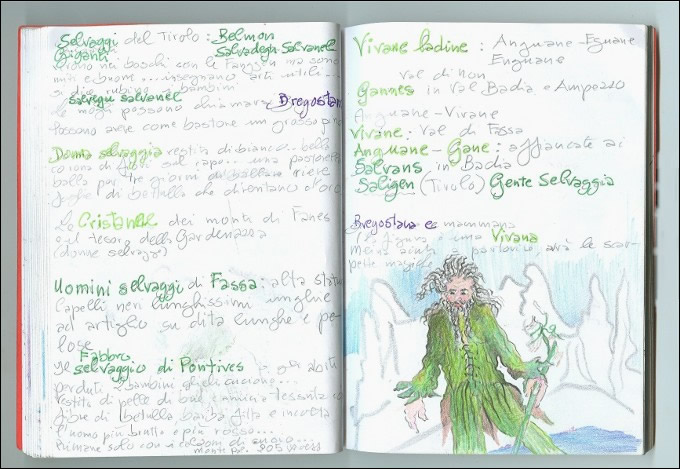 Selvaggi del Tirolo: Belmon
Giganti Salvadegh Salvanel
vivono nei boschi con le Fanggen ma sono
miti e buoni... insegnano arti utili...
si dice rubino bambini
Salvegn salvanel
le moglie possono chiamarsi Bregostan
Possono avere come bastone un grosso pino
Donna selvaggia vestita di bianco... bella
corona di fiori sul capo... una pastorella
balla per tre giorni di
foglie di betulla che diventano d'oro
Le Cristanne dei monti di Fanes
e il tesoro della Gardenazza
(donne selvagge)
Uomini selvaggi di Fassa: alta statura
Capelli neri lunghissimi unghie
ad artiglio su dita lunghe e pe-
lose
Il Fabbro
selvaggio di Pontives gli abiti
perduti i bambini glieli cuciono...
Vestito di pelle di
fibre di betulla barba fitta e incolta
l'uomo più brutto e più rosso...
Rimane solo con i
Vivane ladine: Anguane-Eguane
Enguane
val di non
Gannes in Val Badia e Ampezzo
Anguane-Vivane
Vivane: Val di Fassa
Anguane-Gane: affiancate ai
Salvans in Badia
Saligen (Tirolo) Gente Selvaggia
Bregostana e mammana
è una Vivana
partorire, avrà le scar-
pette magiche